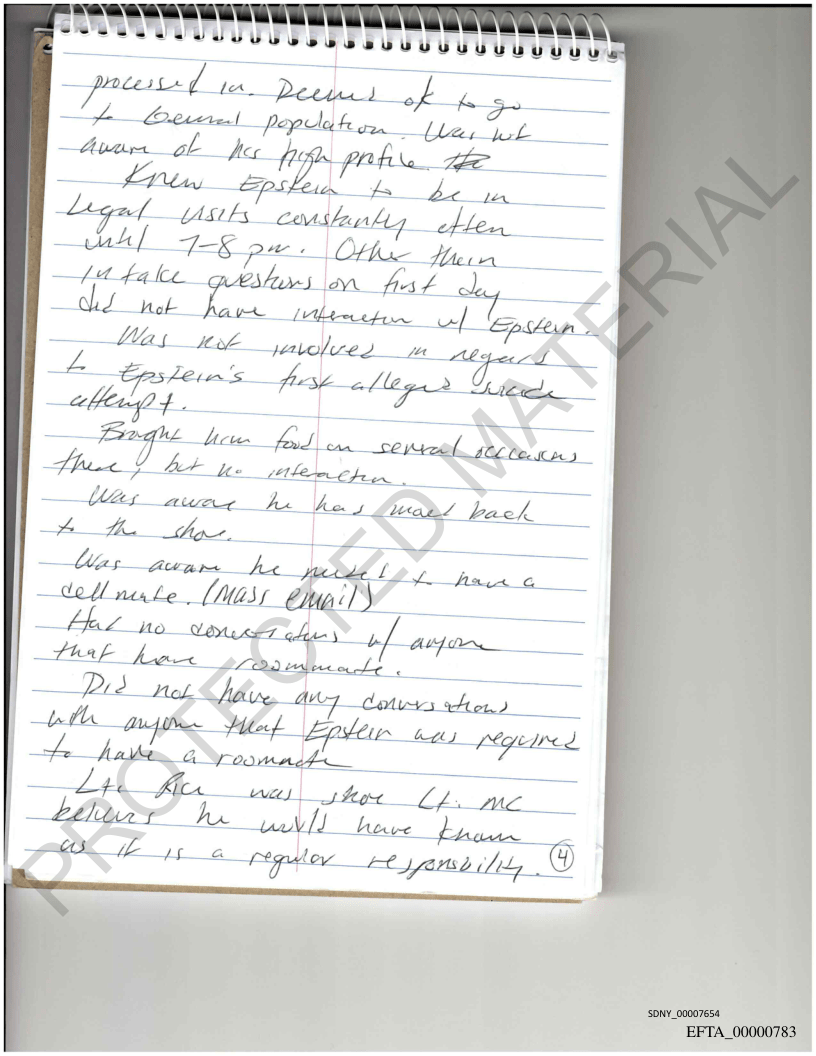 processed in. Deemed ok to go
to General population. Was not
aware of his high profile.
Knew Epstein to be in
Legal visits constantly often
until 7-8 pm. Other then
intake questions on first day
did not have interaction w/ Epstein.
Was not involved in regards
to Epstein's first alleged suicide
attempt.
Brought him food on several occasions
there, but no interaction.
Was aware he has moved back
to the shoe.
Was aware he needed to have a
cell mate. (Mass email)
Had no conversations w/ anyone
that have roommate.
Did not have any conversations
with anyone that Epstein was required
to have a roommate
Lt. was shoe Lt. MC
believes he would have known
as it is a regular responsibility. 4
PROTECTED MATERIAL
SDNY_00007654
EFTA_00000783